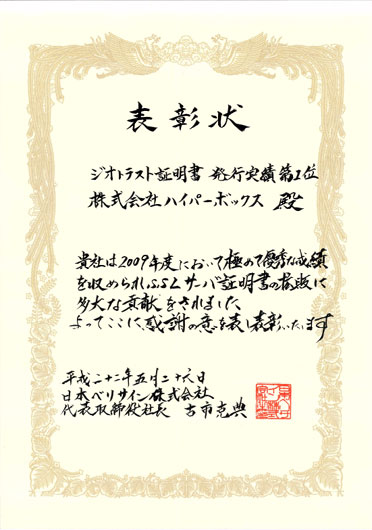 表彰状
ジオトラスト証明書 発行実績第1位
株式会社ハイパーボックス 殿
貴社は2009年度において極めて優秀な成績
を収められSSLサーバ証明書の拡販に
多大な貢献をされました
よってここに感謝の意を表し表彰いたします
平成二十二年五月二十六日
日本ベリサイン株式会社
代表取締役社長 古市克典